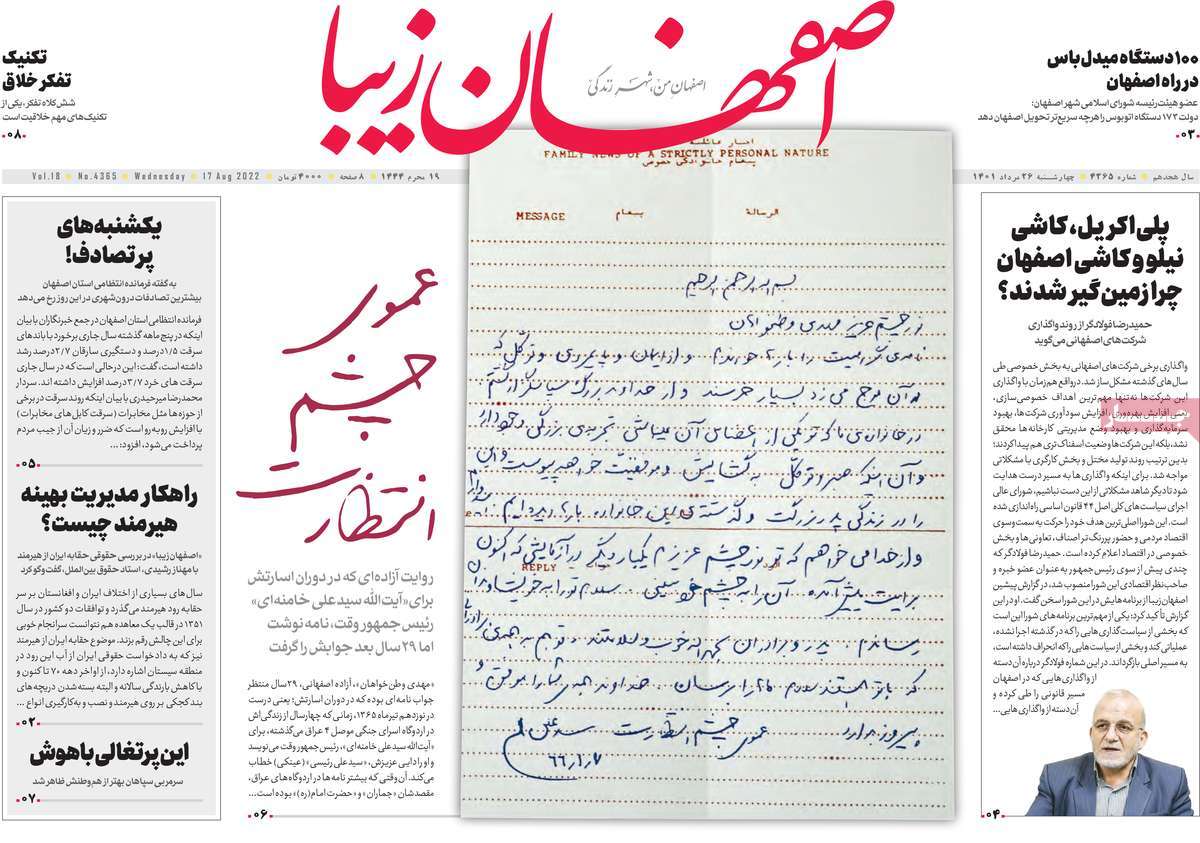 اصفهان زیبا
اصفهانِ من، شهرِ زندگی
۱۰۰ دستگاه میدل‌باس
در راه اصفهان
عضو هیئت‌رئیسه شورای اسلامی شهر اصفهان:
دولت ۱۷۲ دستگاه اتوبوس را هرچه سریع‌تر تحویل اصفهان دهد
۰۲
تکنیک
تفکر خلاق
شش کلاه تفکر، یکی از
تکنیک‌های مهم خلاقیت است
۰۸
سال هجدهم شماره ۴۳۶۵ چهارشنبه ۲۶ مرداد ۱۴۰۱
۱۹ محرم ۱۴۴۴ ۸ صفحه ۴۰۰۰ تومان 17 Aug 2022 Wednesday No.4365 Vol.18
پلی‌اکریل، کاشی
نیلو و کاشی اصفهان
چرا زمین‌گیر شدند؟
حمیدرضا فولادگر از روند واگذاری
شرکت‌های اصفهانی می‌گوید
واگذاری برخی شرکت‌های اصفهانی به بخش خصوصی طی
سال‌های گذشته مشکل‌ساز شد. درواقع هم‌زمان با واگذاری
این شرکت‌ها نه‌تنها مهم‌ترین اهداف خصوصی‌سازی،
یعنی افزایش بهره‌وری، افزایش سودآوری شرکت‌ها، بهبود
سرمایه‌گذاری و بهبود وضع مدیریتی کارخانه‌ها محقق
نشد، بلکه این شرکت‌ها وضعیت اسفناک‌تری هم پیدا کردند؛
بدین ترتیب روند تولید مختل و بخش کارگری با مشکلاتی
مواجه شد. برای اینکه واگذاری‌ها به مسیر درست هدایت
شود تا دیگر شاهد مشکلاتی از این دست نباشیم، شورای عالی
اجرای سیاست‌های کلی اصل ۴۴ قانون اساسی راه‌اندازی شده
است. این شورا اصلی‌ترین هدف خود را حرکت به سمت‌وسوی
اقتصاد مردمی و حضور پررنگ‌تر اصناف، تعاونی‌ها و بخش
خصوصی در اقتصاد اعلام کرده است. حمیدرضا فولادگر که
چندی پیش از سوی رئیس‌جمهور به عنوان عضو خبره و
صاحب‌نظر اقتصادی این شورا منصوب شد، در گزارش پیشین
اصفهان زیبا از برنامه‌هایش در این شورا سخن گفت. او در این
گزارش تأکید کرد: یکی از مهم‌ترین برنامه‌های شورا این است
که بخشی از سیاست‌گذاری‌هایی را که در گذشته اجرا نشده،
عملیاتی کند و بخشی از سیاست‌هایی را که انحراف داشته است،
به مسیر اصلی بازگرداند. در این شماره فولادگر درباره آن دسته
از واگذاری‌هایی که در اصفهان
مسیر قانونی را طی کرده و
آن دسته از واگذاری‌هایی...
۰۴
FAMILY NEWS OF A STRICTLY PERSONAL NATURE
پیغام خانوادگی خصوصی
MESSAGE پیغام الرسالة
بسم الله الرحمن الرحیم
نور چشم عزیز مهدی وطنخواهان
نامه‌ی گرامیت را بارها خواندم و از ایمان و پایمردی و توکل که
در آن موج می‌زد بسیار خرسند و از خداوند بزرگ سپاسگزار گشتم
REPLY
عموی چشم انتظارت سید علی
عموی
چشم
انتظارت
روایت آزاده‌ای که در دوران اسارتش
برای «آیت‌الله سیدعلی خامنه‌ای»
رئیس‌جمهور وقت، نامه نوشت
اما ۲۹ سال بعد جوابش را گرفت
«مهدی وطن‌خواهان»، آزاده اصفهانی، ۲۹ سال منتظر
جواب نامه‌ای بوده که در دوران اسارتش؛ یعنی درست
در نوزدهم تیرماه ۱۳۶۵، زمانی که چهارسال از زندگی‌اش
در اردوگاه اسرای جنگی موصل ۴ عراق می‌گذشت، به
«آیت‌الله سیدعلی خامنه‌ای»، رئیس‌جمهور وقت می‌نویسد
و او را دایی عزیزش، «سیدعلی رئیسی» (عینکی) خطاب
می‌کند. آن وقتی که بیشتر نامه‌ها در اردوگاه‌های عراق،
مقصدشان «جماران» و «حضرت امام(ره)» بوده است...
۰۶
یکشنبه‌های
پرتصادف!
به گفته فرمانده انتظامی استان اصفهان
بیشترین تصادفات درون‌شهری در این روز رخ می‌دهد
فرمانده انتظامی استان اصفهان در جمع خبرنگاران با بیان
اینکه در پنج‌ماهه گذشته سال جاری برخورد با باندهای
سرقت ۱/۵ درصد و دستگیری سارقان ۲/۷ درصد رشد
داشته است، گفت: این درحالی است که در سال جاری
سرقت‌های خرد ۳/۷ درصد افزایش داشته اند. سردار
محمدرضا میرحیدری با بیان اینکه روند سرقت در برخی
از حوزه‌ها مثل مخابرات (سرقت کابل‌های مخابرات)
با افزایش روبه‌رو است که ضرر و زیان آن از جیب مردم
پرداخت می‌شود، افزود:...
۰۵
راهکار مدیریت بهینه
هیرمند چیست؟
«اصفهان زیبا» در بررسی حقوقی حقابه ایران از هیرمند
با مهناز رشیدی، استاد حقوق بین‌الملل، گفت‌وگو کرد
سال‌های بسیاری از اختلاف ایران و افغانستان بر سر
حقابه رود هیرمند می‌گذرد و توافقات دو کشور در سال
۱۳۵۱ در قالب یک معاهده هم نتوانست سرانجام خوبی
برای این چالش رقم بزند. موضوع حقابه ایران از هیرمند
نیز که به دادخواست حقوقی ایران از آب این رود در
منطقه سیستان اشاره دارد، از اواخر دهه ۷۰ تا کنون و
با کاهش بارندگی سالانه و البته بسته‌شدن دریچه‌های
بند کجکی بر روی هیرمند و نصب و به‌کارگیری انواع ...
۰۲
این پرتغالی باهوش
سرمربی سپاهان بهتر از هم‌وطنش ظاهر شد
۰۷